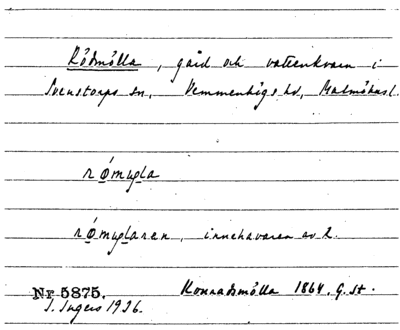 Rödmölla, gård och vattenkvarn i
Svenstorps sn, Vemmenhögs hd, Malmöhusl.
rǿmụgla
rǿmụglaren, innehavaren av R.
Konnadsmölla 1864. G. St.
Nr 5875.
I. Ingers 1936.